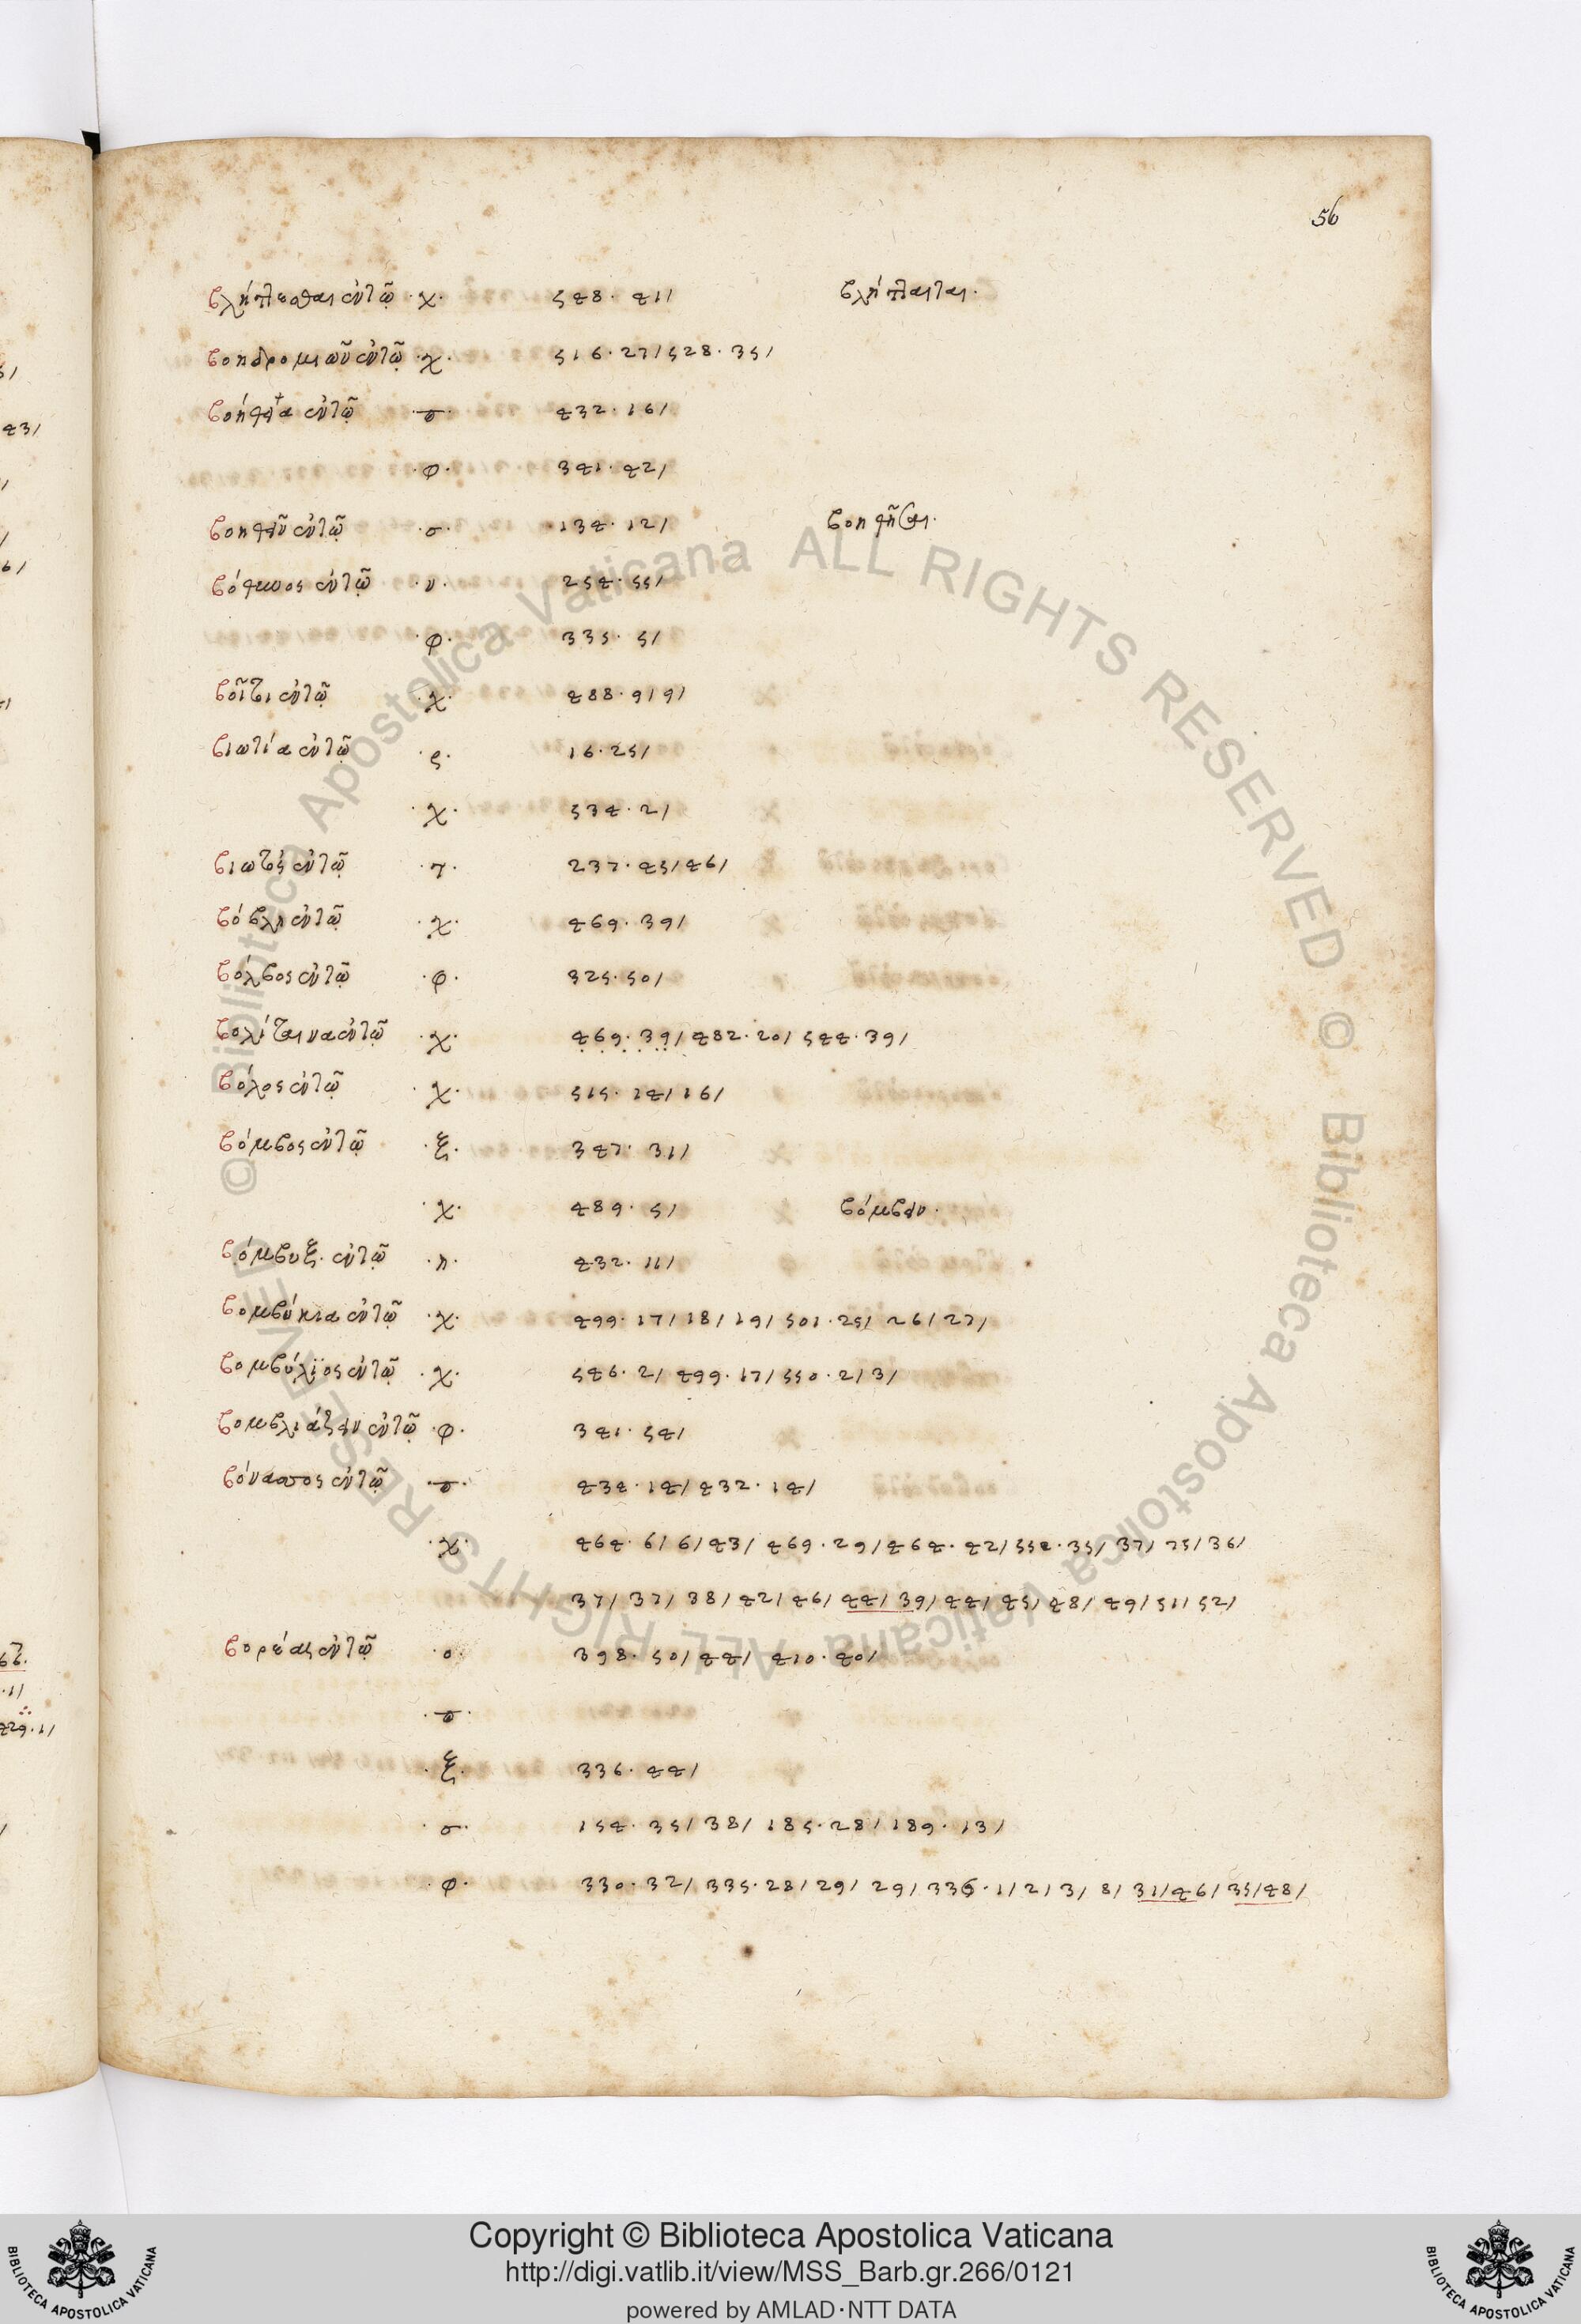 56
βλήπεσθαι ἐν τῷ · χ · 548 · 41/ βλήπεται ·
βοηδρομιῶν ἐν τῷ · χ · 516 · 27/ 528 · 35/
ἐν τῷ 432 · 16/
· φ · 341 · 42/
βοηθεῖν ἐν τῷ · σ · 134 · 12/
ἐν τῷ · ν · 254 · 55/
· φ · 335 · 5/
ἐν τῷ · χ · 488 · 9/ 9/
βιωτία ἐν τῷ · ς · 16 · 25/
· χ · 534 · 2/
ἐν τῷ 237 · 45/ 46/
βόβλη ἐν τῷ · χ · 469 · 39/
βόλβος ἐν τῷ · φ · 325 · 50/
βολίταινα ἐν τῷ · χ · 469 · 39/ 482 · 20/ 544 · 39/
βόλος ἐν τῷ · χ · 515 · 14/ 16/
βόμβος ἐν τῷ · ξ · 347 · 31/
· χ · 489 · 5/ βόμβειν ·
βόμβυξ · ἐν τῷ · π · 432 · 11/
βομβύκια ἐν τῷ · χ · 499 · 17/ 18/ 19/ 501 · 25/ 26/ 27/
βομβύλϊος ἐν τῷ · χ · 546 · 2/ 499 · 17/ 550 · 2/ 3/
βομβλιάζειν ἐν τῷ · φ · 341 · 54/
βόνασος ἐν τῷ 434 · 14/ 432 · 14/
· χ · 464 · 6/ 6/ 43/ 469 · 29/ 464 · 42/ 35/ 37/ 36/
37/ 37/ 38/ 42/ 46/ 44/ 39/ 44/ 45/ 48/ 49/ 51/ 52/
βορέας ἐν τῷ · ο · 398 · 50/ 44/ 410 · 40/
· ξ · 336 · 44/
· σ · 154 · 35/ 38/ 185 · 28/ 189 · 13/
· φ · 330 · 32/ 335 · 28/ 29/ 29/ 336 · 1/ 2/ 3/ 8/ 31/ 46/ 35/ 48/
© Biblioteca Apostolica Vaticana ALL RIGHTS RESERVED © Biblioteca Apostolica Vaticana ALL RIGHTS RESERVED
Copyright © Biblioteca Apostolica Vaticana
http://digi.vatlib.it/view/MSS_Barb.gr.266/0121
powered by AMLAD·NTT DATA
BIBLIOTECA APOSTOLICA VATICANA
BIBLIOTECA APOSTOLICA VATICANA